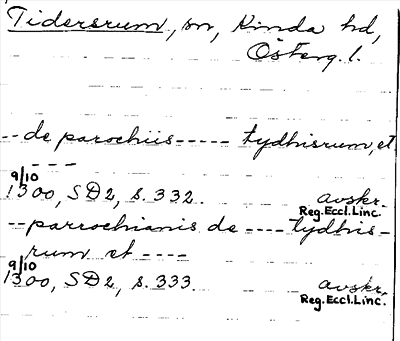 Tidersrum, sn, Kinda hd,
Österg. l.
-- de parochiis ----- tydhisrum, et
- - -
9/10
1300, SD2, s. 332. avskr.
Reg. Eccl. Linc.
-- parrochianis de ---- tydhis-
rum et ----
9/10
1300, SD2, s. 333 avskr.
Reg. Eccl. Linc.